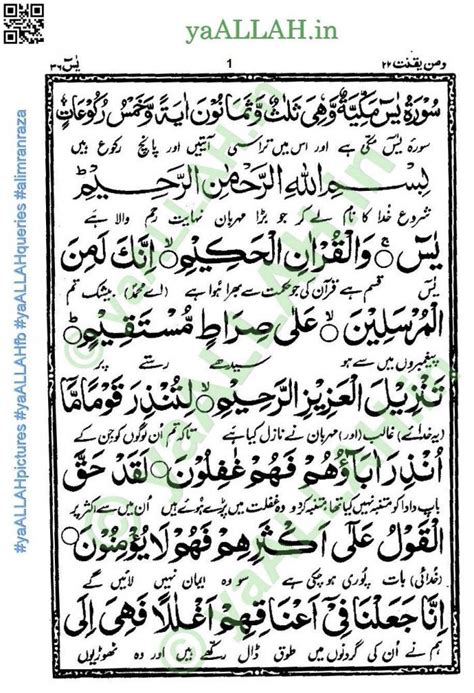 yaALLAH.in
ومن یقنت ۲۲
1
یٰسٓ ۳۶
سُوْرَةُ یٰسٓ مَكِّيَّةٌ وَّهِيَ ثَلٰثٌ وَّثَمَانُوْنَ اٰيَةً وَّخَمْسُ رُكُوْعَاتٍ
سورۂ یٰسٓ مکی ہے اور اس میں تراسی آیتیں اور پانچ رکوع ہیں
بِسْمِ اللهِ الرَّحْمٰنِ الرَّحِيْمِ
شروع خدا کا نام لے کر جو بڑا مہربان نہایت رحم والا ہے
یٰسٓ وَالْقُرْاٰنِ الْحَكِيْمِ اِنَّكَ لَمِنَ
یٰسٓ قسم ہے قرآن کی جو حکمت سے بھرا ہوا ہے (اے محمدؐ) بیشک تم
الْمُرْسَلِيْنَ عَلٰى صِرَاطٍ مُّسْتَقِيْمٍ
پیغمبروں میں سے ہو سیدھے رستے پر
تَنْزِيْلَ الْعَزِيْزِ الرَّحِيْمِ لِتُنْذِرَ قَوْمًا مَّا
(یہ خدائے) غالب (اور) مہربان نے نازل کیا ہے تاکہ تم ان لوگوں کو جن کے
اُنْذِرَ اٰبَآؤُهُمْ فَهُمْ غٰفِلُوْنَ لَقَدْ حَقَّ
باپ دادا کو متنبہ نہیں کیا گیا تھا متنبہ کردو وہ غفلت میں پڑے ہوئے ہیں ان میں سے اکثر پر
الْقَوْلُ عَلٰٓى اَكْثَرِهِمْ فَهُمْ لَا يُؤْمِنُوْنَ
(خدا کی) بات پوری ہو چکی ہے سو وہ ایمان نہیں لائیں گے
اِنَّا جَعَلْنَا فِيْٓ اَعْنَاقِهِمْ اَغْلٰلًا فَهِيَ اِلَى
ہم نے ان کی گردنوں میں طوق ڈال رکھے ہیں اور وہ ٹھوڑیوں
#yaALLAHpictures #yaALLAHfb #yaALLAHqueries #alimranraza
© yaALLAH.in